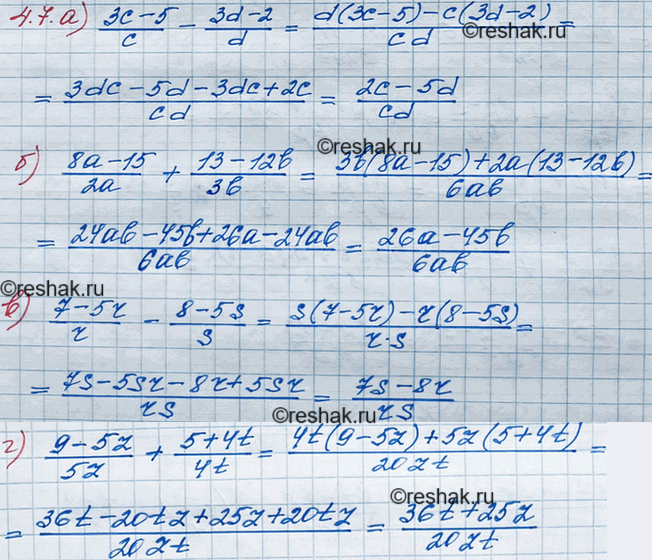 4.7. а) (3c-5)/c - (3d-2)/d = (d(3c-5)-c(3d-2))/cd =
= (3dc-5d-3dc+2c)/cd = (2c-5d)/cd
©reshak.ru
б) (8a-15)/2a + (13-12b)/3b = (3b(8a-15)+2a(13-12b))/6ab =
= (24ab-45b+26a-24ab)/6ab = (26a-45b)/6ab
©reshak.ru
в) (7-5r)/r - (8-5s)/s = (s(7-5r)-r(8-5s))/r·s =
= (7s-5sr-8r+5sr)/rs = (7s-8r)/rs
©reshak.ru
г) (9-5z)/5z + (5+4t)/4t = (4t(9-5z)+5z(5+4t))/20zt =
= (36t-20tz+25z+20tz)/20zt = (36t+25z)/20zt
©reshak.ru